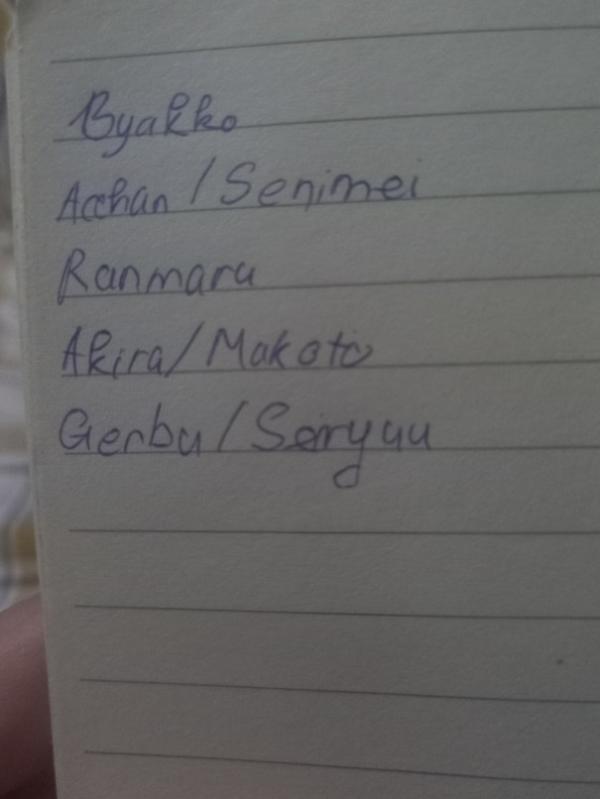 Byakko
Acchan / Senimei
Ranmaru
Akira/Makoto
Genbu/Seiryuu